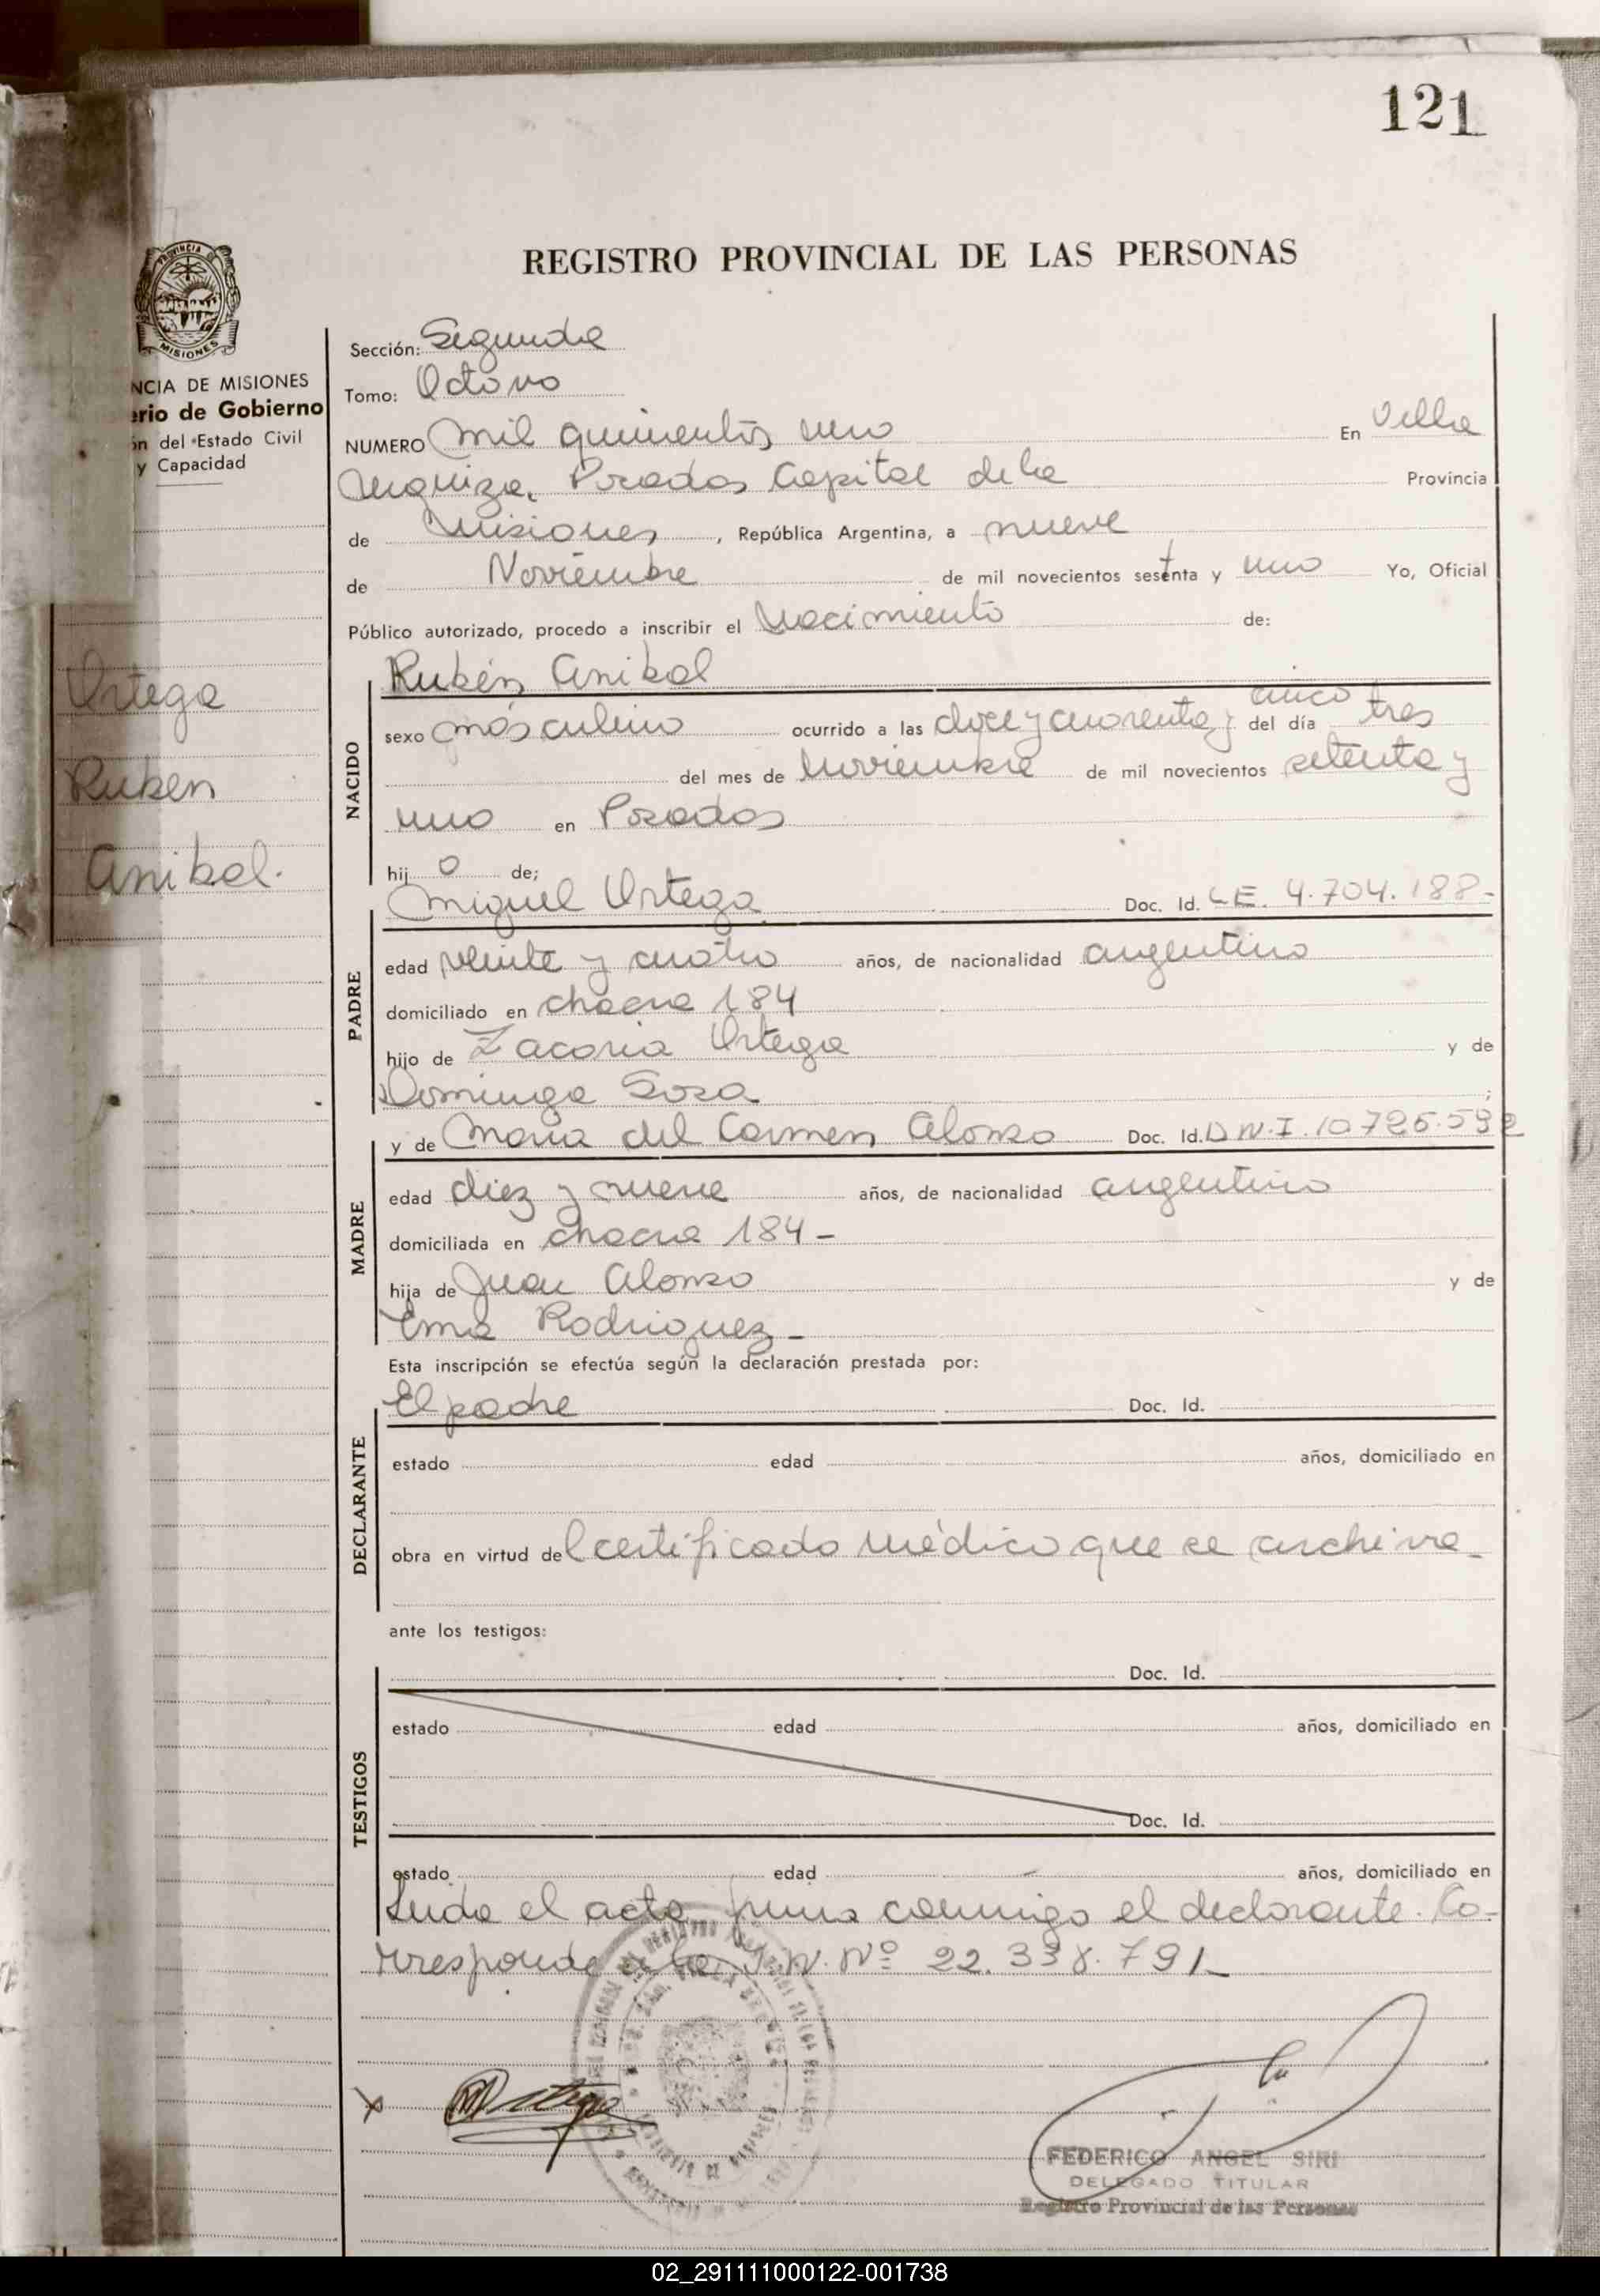 121
REGISTRO PROVINCIAL DE LAS PERSONAS
PROVINCIA
MISIONES
NCIA DE MISIONES
erio de Gobierno
ón del Estado Civil
y Capacidad
Ortega
Ruben
Anibal.
Sección: Segunda
Tomo: Octavo
NUMERO Mil quinientos uno En Villa
Urquiza, Posadas Capital de la Provincia
de Misiones, República Argentina, a nueve
de Noviembre de mil novecientos sesetnta y uno Yo, Oficial
Público autorizado, procedo a inscribir el Nacimiento de:
Rubén Anibal
NACIDO
sexo másculino ocurrido a las doce y cuarenta y cinco del día tres
del mes de Noviembre de mil novecientos setenta y
uno en Posadas
hij o de;
Miguel Ortega Doc. Id. LE. 4.704.188-
PADRE
edad veinte y cuatro años, de nacionalidad argentino
domiciliado en chacra 184
hijo de Zacaria Ortega y de
Dominga Sosa ;
y de María del Carmen Alonso Doc. Id. DN.I. 10726.592
MADRE
edad diez y nueve años, de nacionalidad argentina
domiciliada en chacra 184-
hija de Juan Alonso y de
Ema Rodriguez-
Esta inscripción se efectúa según la declaración prestada por:
El padre Doc. Id.
DECLARANTE
estado edad años, domiciliado en
obra en virtud del certificado médico que se archiva-
ante los testigos:
Doc. Id.
TESTIGOS
estado edad años, domiciliado en
Doc. Id.
estado edad años, domiciliado en
Leida el acta firma conmigo el declarante. Co-
rresponde a la N. Nº 22.338.791-
FEDERICO ANGEL SIRI
DELEGADO TITULAR
Registro Provincial de las Personas
02_291111000122-001738